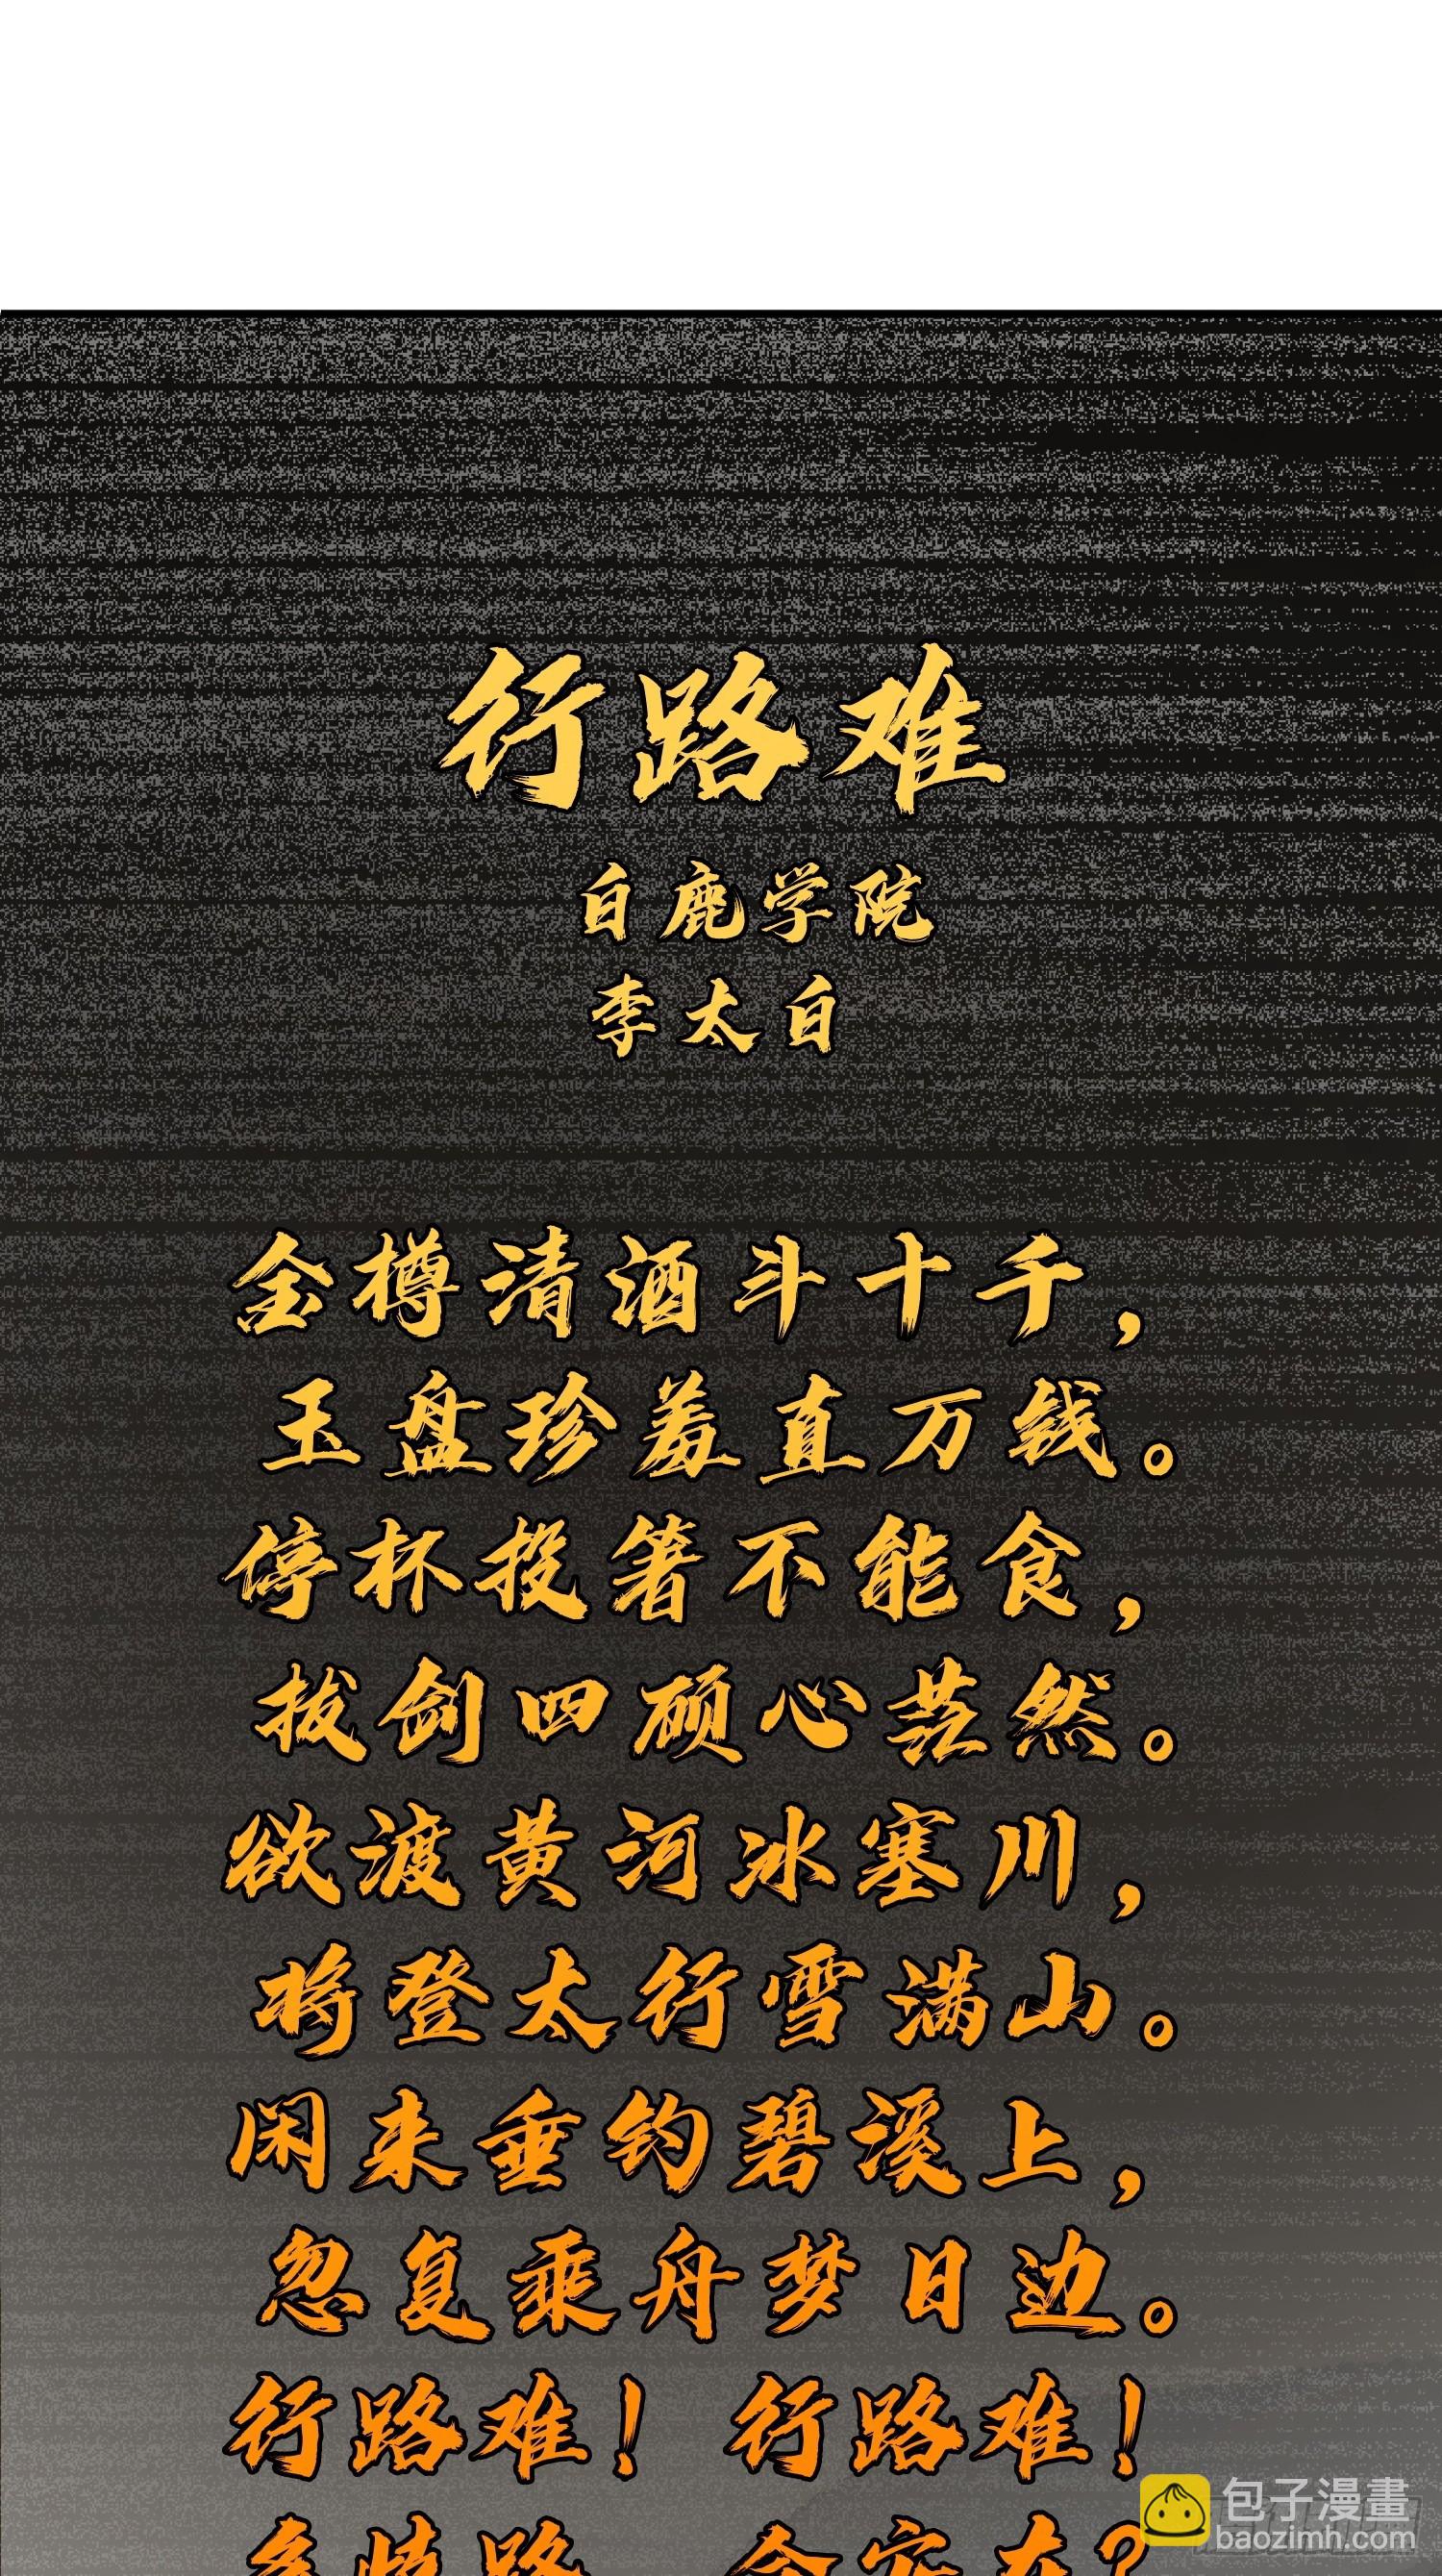 行路难
白鹿学院
李太白
金樽清酒斗十千，
玉盘珍羞直万钱。
停杯投箸不能食，
拔剑四顾心茫然。
欲渡黄河冰塞川，
将登太行雪满山。
闲来垂钓碧溪上，
忽复乘舟梦日边。
行路难！ 行路难！
多歧路，今安在？
包子漫畫
baozimh.com